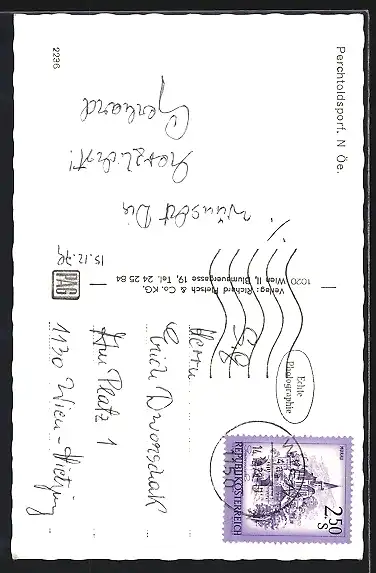 Perchtoldsporf. N Öe.
2236
wünscht Dir
herzlichst!
Gerhard
15.12.79
Verlag: Richard Pietsch & Co. KG.
1020 Wien II, Blumauergasse 19, Tel. 24 25 84
PAG
Echte
Photographie
MURAU
2.50
S
REPUBLIK ÖSTERREICH
Herrn
Erich Dworschak
Am Platz 1
1130 Wien-Hietzing